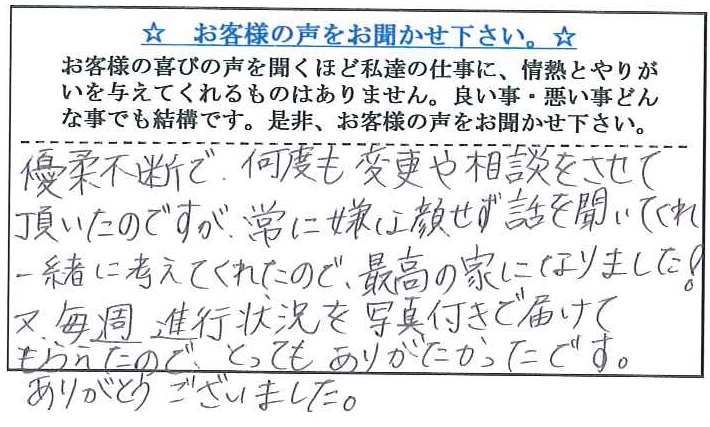 ☆ お客様の声をお聞かせ下さい。☆
お客様の喜びの声を聞くほど私達の仕事に、情熱とやりが
いを与えてくれるものはありません。良い事・悪い事どん
な事でも結構です。是非、お客様の声をお聞かせ下さい。
優柔不断で、何度も変更や相談をさせて
頂いたのですが、常に嫌な顔せず話を聞いてくれ
一緒に考えてくれたので、最高の家になりました!
又、毎週 進行状況を写真付きで届けて
もられたので、とってもありがたかったです。
ありがとうございました。